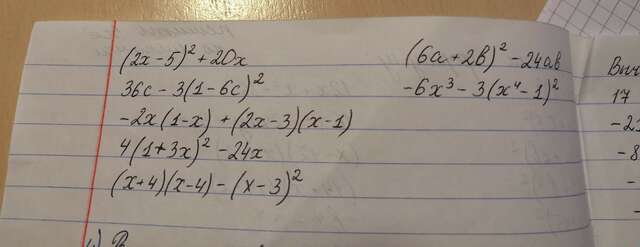 (2x-5)² + 20x
36c - 3(1-6c)²
-2x(1-x) + (2x-3)(x-1)
4(1+3x)² - 24x
(x+4)(x-4) - (x-3)²
(6a+2b)² - 24ab
-6x³ - 3(x⁴-1)²
17